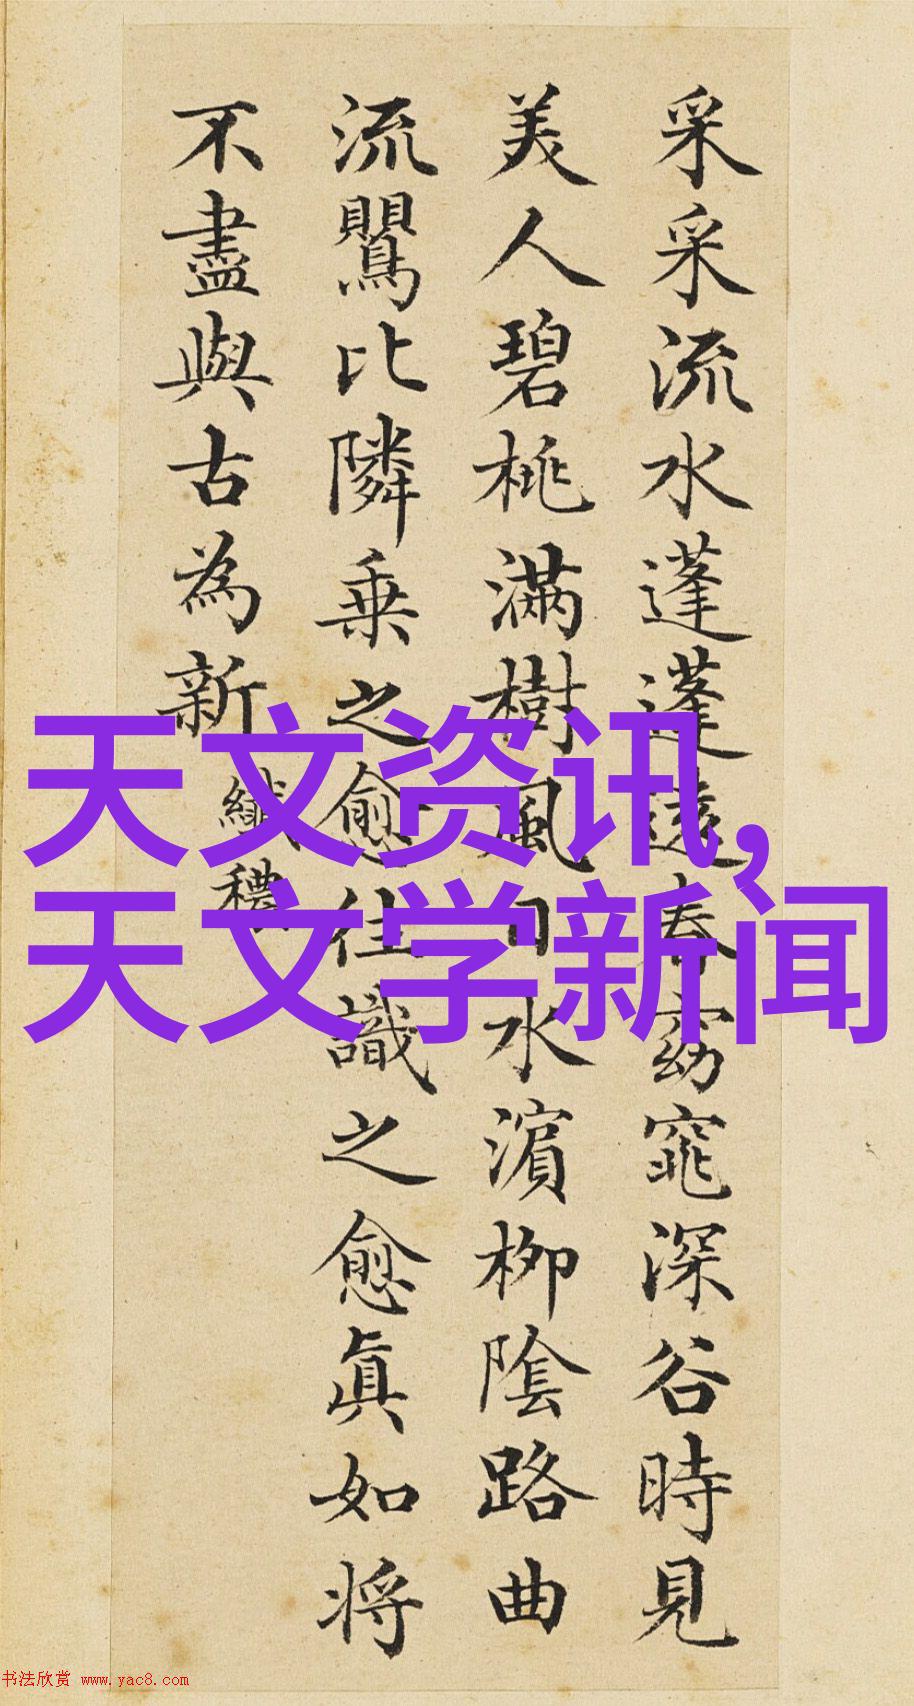 采采流水蓬蓬遠春窈窕深谷時見
美人碧桃滿樹風日水濱柳陰路曲
流鸎比隣乗之愈往識之愈眞如将
不盡與古為新
纖穠
天文资讯,
天文学新闻
书法欣赏 www.yac8.com